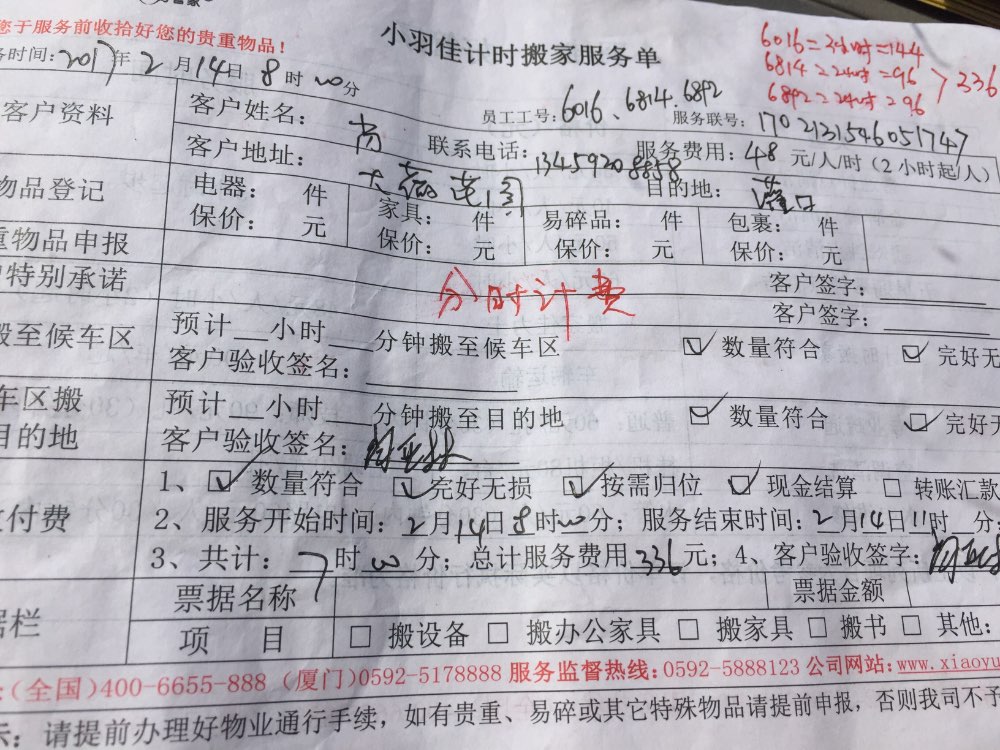 您于服务前收拾好您的贵重物品！
小羽佳计时搬家服务单
6016=3小时=144
6814=2小时=96
6892=2小时=96
>336
务时间：2017年2月14日8时00分
员工工号：6016、6814、6892
服务联号：1702131546051747
客户资料
客户姓名：肖
联系电话：13459208858
服务费用：48元/人/时（2小时起/人）
客户地址：
目的地：灌口
物品登记
电器： 件 家具： 件 易碎品： 件 包裹： 件
保价： 元 保价： 元 保价： 元 保价： 元
重物品申报
客户签字：
特别承诺
分时计费
客户签字：
搬至候车区
预计__小时__分钟搬至候车区 ☑ 数量符合 ☑ 完好无
客户验收签名：
车区搬
目的地
预计__小时__分钟搬至目的地 ☑ 数量符合 ☑ 完好无
客户验收签名：
付费
1、☑ 数量符合 ☑ 完好无损 ☑ 按需归位 ☑ 现金结算 □ 转账汇款
2、服务开始时间：2月14日8时00分；服务结束时间：2月14日11时__分；
3、共计：7时00分；总计服务费用336元；4、客户验收签字：
据栏
票据名称
票据金额
项 目 □ 搬设备 □ 搬办公家具 □ 搬家具 □ 搬书 □ 其他：
：（全国）400-6655-888（厦门）0592-5178888 服务监督热线：0592-5888123 公司网站：www.xiaoyu
示：请提前办理好物业通行手续，如有贵重、易碎或其它特殊物品请提前申报，否则我司不予